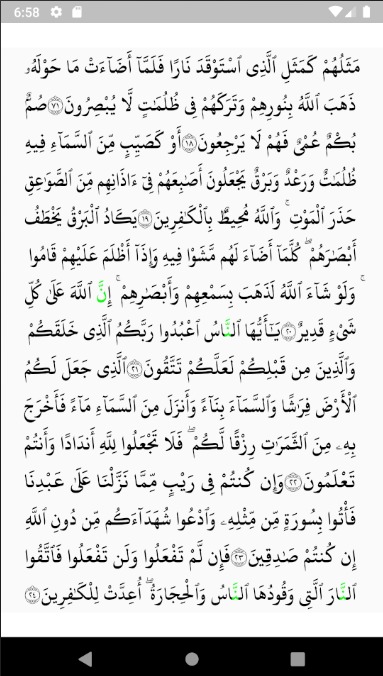 6:58
مَثَلُهُمْ كَمَثَلِ ٱلَّذِى ٱسْتَوْقَدَ نَارًا فَلَمَّآ أَضَآءَتْ مَا حَوْلَهُۥ
ذَهَبَ ٱللَّهُ بِنُورِهِمْ وَتَرَكَهُمْ فِى ظُلُمَٰتٍ لَّا يُبْصِرُونَ ١٧ صُمٌّۢ
بُكْمٌ عُمْىٌ فَهُمْ لَا يَرْجِعُونَ ١٨ أَوْ كَصَيِّبٍ مِّنَ ٱلسَّمَآءِ فِيهِ
ظُلُمَٰتٌ وَرَعْدٌ وَبَرْقٌ يَجْعَلُونَ أَصَٰبِعَهُمْ فِىٓ ءَاذَانِهِم مِّنَ ٱلصَّوَٰعِقِ
حَذَرَ ٱلْمَوْتِ ۚ وَٱللَّهُ مُحِيطٌۢ بِٱلْكَٰفِرِينَ ١٩ يَكَادُ ٱلْبَرْقُ يَخْطَفُ
أَبْصَٰرَهُمْ ۖ كُلَّمَآ أَضَآءَ لَهُم مَّشَوْا۟ فِيهِ وَإِذَآ أَظْلَمَ عَلَيْهِمْ قَامُوا۟
ۚ وَلَوْ شَآءَ ٱللَّهُ لَذَهَبَ بِسَمْعِهِمْ وَأَبْصَٰرِهِمْ ۚ إِنَّ ٱللَّهَ عَلَىٰ كُلِّ
شَىْءٍ قَدِيرٌ ٢٠ يَٰٓأَيُّهَا ٱلنَّاسُ ٱعْبُدُوا۟ رَبَّكُمُ ٱلَّذِى خَلَقَكُمْ
وَٱلَّذِينَ مِن قَبْلِكُمْ لَعَلَّكُمْ تَتَّقُونَ ٢١ ٱلَّذِى جَعَلَ لَكُمُ
ٱلْأَرْضَ فِرَٰشًا وَٱلسَّمَآءَ بِنَآءً وَأَنزَلَ مِنَ ٱلسَّمَآءِ مَآءً فَأَخْرَجَ
بِهِۦ مِنَ ٱلثَّمَرَٰتِ رِزْقًا لَّكُمْ ۖ فَلَا تَجْعَلُوا۟ لِلَّهِ أَندَادًا وَأَنتُمْ
تَعْلَمُونَ ٢٢ وَإِن كُنتُمْ فِى رَيْبٍ مِّمَّا نَزَّلْنَا عَلَىٰ عَبْدِنَا
فَأْتُوا۟ بِسُورَةٍ مِّن مِّثْلِهِۦ وَٱدْعُوا۟ شُهَدَآءَكُم مِّن دُونِ ٱللَّهِ
إِن كُنتُمْ صَٰدِقِينَ ٢٣ فَإِن لَّمْ تَفْعَلُوا۟ وَلَن تَفْعَلُوا۟ فَٱتَّقُوا۟
ٱلنَّارَ ٱلَّتِى وَقُودُهَا ٱلنَّاسُ وَٱلْحِجَارَةُ ۖ أُعِدَّتْ لِلْكَٰفِرِينَ ٢٤